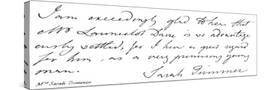 I am exceedingly glad to hear that
Mr Launcelot Dane is so advantage
ously settled, for I have a great regard
for him, as a very promising young
man.
Sarah Trimmer
Mrs Sarah Trimmer